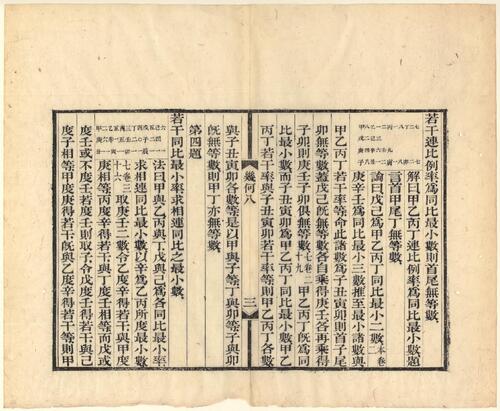 若干連比例率爲同比最小數則首尾無等數
解曰甲乙丙丁連比例率爲同比最小數題
言首甲尾丁無等數
論曰戊己爲甲乙丙丁同比最小二數本卷二
庚辛壬爲同比最小三數推至最小諸數與
甲乙丙丁若干率等命此諸數爲子丑寅卯則首子尾
卯無等數蓋戊己旣無等數各自乘得庚壬各再乘得
子卯則庚壬子卯俱無等數七卷二十九甲乙丙丁旣爲同
比最小數而子丑寅卯爲甲乙丙丁同比最小數甲乙
丙丁若干率與子丑寅卯若干率等則甲乙丙丁各數
幾何八
三
與子丑寅卯各數等是以甲與子等丁與卯等子與卯
旣無等數則甲丁亦無等數
第四題
若干同比最小率求相連同比之最小數
法曰甲與乙丙與丁戊與己爲各同比最小率
求相連同比最小數以辛爲乙丙所度最小數
七卷三十六取庚壬二數令乙度辛得若干與甲度
庚相等丙度辛得若干與丁度壬相等而戊或
度壬或不度壬若度壬則取子令戊度壬得若干與己
度子相等甲度庚得若干旣與乙度辛得若干等則甲